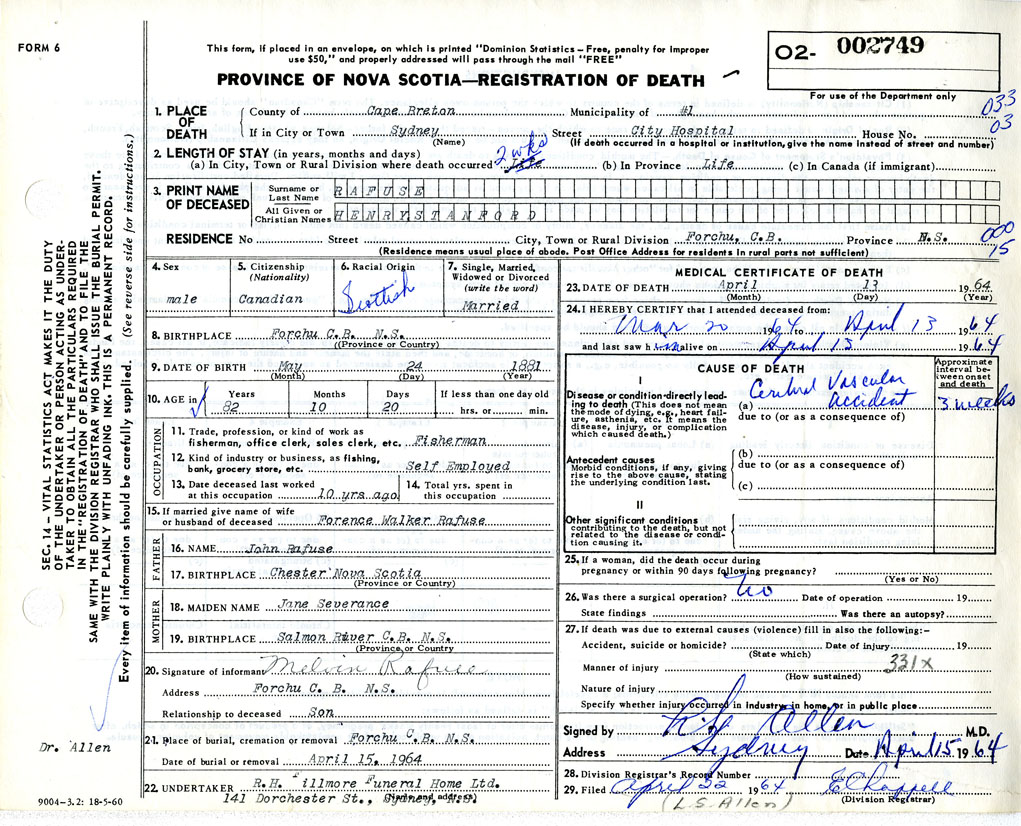 FORM 6
This form, if placed in an envelope, on which is printed "Dominion Statistics – Free, penalty for improper
use $50," and properly addressed will pass through the mail "FREE"
PROVINCE OF NOVA SCOTIA—REGISTRATION OF DEATH
O2- 002749
For use of the Department only
033
03
1. PLACE OF DEATH
County of Cape Breton Municipality of #1
If in City or Town Sydney Street City Hospital House No.
(Name) (If death occurred in a hospital or institution, give the name instead of street and number)
2. LENGTH OF STAY (in years, months and days)
(a) In City, Town or Rural Division where death occurred 2 wks Life (b) In Province Life (c) In Canada (if immigrant)
3. PRINT NAME OF DECEASED
Surname or Last Name RAFUSE
All Given or Christian Names HENRY STANFORD
RESIDENCE No Street City, Town or Rural Division Forchu, C.B. Province N.S.
000
15
(Residence means usual place of abode. Post Office Address for residents in rural parts not sufficient)
4. Sex
male
5. Citizenship
(Nationality)
Canadian
6. Racial Origin
Scottish
7. Single, Married, Widowed or Divorced
(write the word)
Married
8. BIRTHPLACE Forchu C.B. N.S.
(Province or Country)
9. DATE OF BIRTH May 24 1881
(Month) (Day) (Year)
10. AGE in Years Months Days If less than one day old
82 10 20 hrs. or min.
OCCUPATION
11. Trade, profession, or kind of work as
fisherman, office clerk, sales clerk, etc. Fisherman
12. Kind of industry or business, as fishing,
bank, grocery store, etc. Self Employed
13. Date deceased last worked
at this occupation 10 yrs ago
14. Total yrs. spent in
this occupation
15. If married give name of wife
or husband of deceased Forence Walker Rafuse
FATHER
16. NAME John Rafuse
17. BIRTHPLACE Chester Nova Scotia
(Province or Country)
MOTHER
18. MAIDEN NAME Jane Severance
19. BIRTHPLACE Salmon River C.B. N.S.
(Province, or Country
20. Signature of informant Melvin Rafuse
Address Forchu C. B. N.S.
Relationship to deceased Son
21. Place of burial, cremation or removal Forchu C.B. N.S.
Date of burial or removal April 15. 1964
22. UNDERTAKER R.H. Fillmore Funeral Home Ltd.
141 Dorchester St., Sydney, N.S.
(Name and address)
MEDICAL CERTIFICATE OF DEATH
23. DATE OF DEATH April 13 1964
(Month) (Day) (Year)
24. I HEREBY CERTIFY that I attended deceased from:
Mar 20 1964 April 13 1964
and last saw him alive on April 13 1964
CAUSE OF DEATH
Approximate interval between onset and death
I
Disease or condition directly leading to death (This does not mean
the mode of dying, e.g., heart failure, asthenia, etc. It means the
disease, injury, or complication
which caused death.)
(a) Cerebral Vascular Accident 3 weeks
due to (or as a consequence of)
Antecedent causes
Morbid conditions, if any, giving
rise to the above cause, stating
the underlying condition last.
(b)
due to (or as a consequence of)
(c)
II
Other significant conditions
contributing to the death, but not
related to the disease or condition causing it.
25. If a woman, did the death occur during
pregnancy or within 90 days following pregnancy?
(Yes or No)
26. Was there a surgical operation? No Date of operation 19
State findings Was there an autopsy?
27. If death was due to external causes (violence) fill in also the following:–
Accident, suicide or homicide? Date of injury 19
(State which)
Manner of injury 331x
(How sustained)
Nature of injury
Specify whether injury occurred in Industry, in home, or in public place
Signed by Allen M.D.
Address Sydney Date April 15 1964
28. Division Registrar's Record Number
29. Filed April 22 1964 E Chappell
(L.S. Allen) (Division Registrar)
SEC. 14 – VITAL STATISTICS ACT MAKES IT THE DUTY
OF THE UNDERTAKER OR PERSON ACTING AS UNDERTAKER TO OBTAIN ALL THE PARTICULARS REQUIRED
IN THE "REGISTRATION OF DEATH" AND TO FILE THE
SAME WITH THE DIVISION REGISTRAR WHO SHALL ISSUE THE BURIAL PERMIT.
WRITE PLAINLY WITH UNFADING INK. THIS IS A PERMANENT RECORD.
Every item of information should be carefully supplied. (See reverse side for instructions.)
Dr. Allen
9004–3.2: 18-5-60